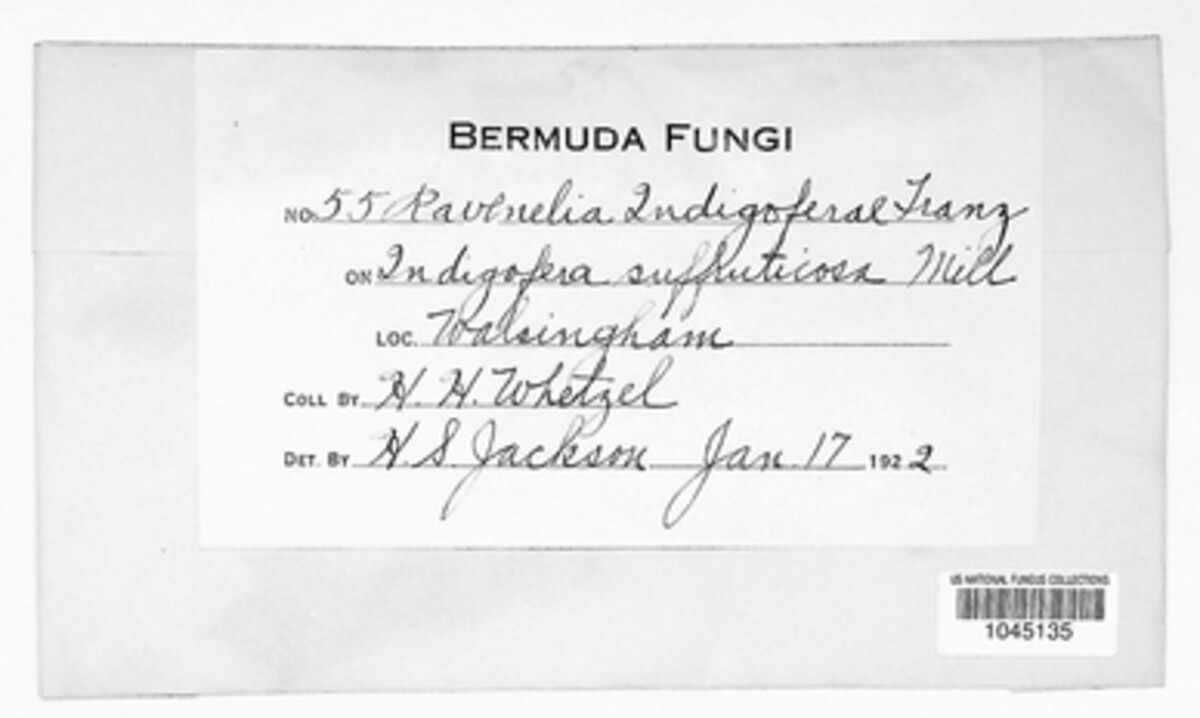 BERMUDA FUNGI
NO. 55 Ravenelia Indigoferae Tranz
ON Indigofera suffruticosa Mill
LOC. Walsingham
COLL BY H. H. Whetzel
DET. BY H. S. Jackson Jan. 17 1922
US NATIONAL FUNGUS COLLECTIONS
1045135